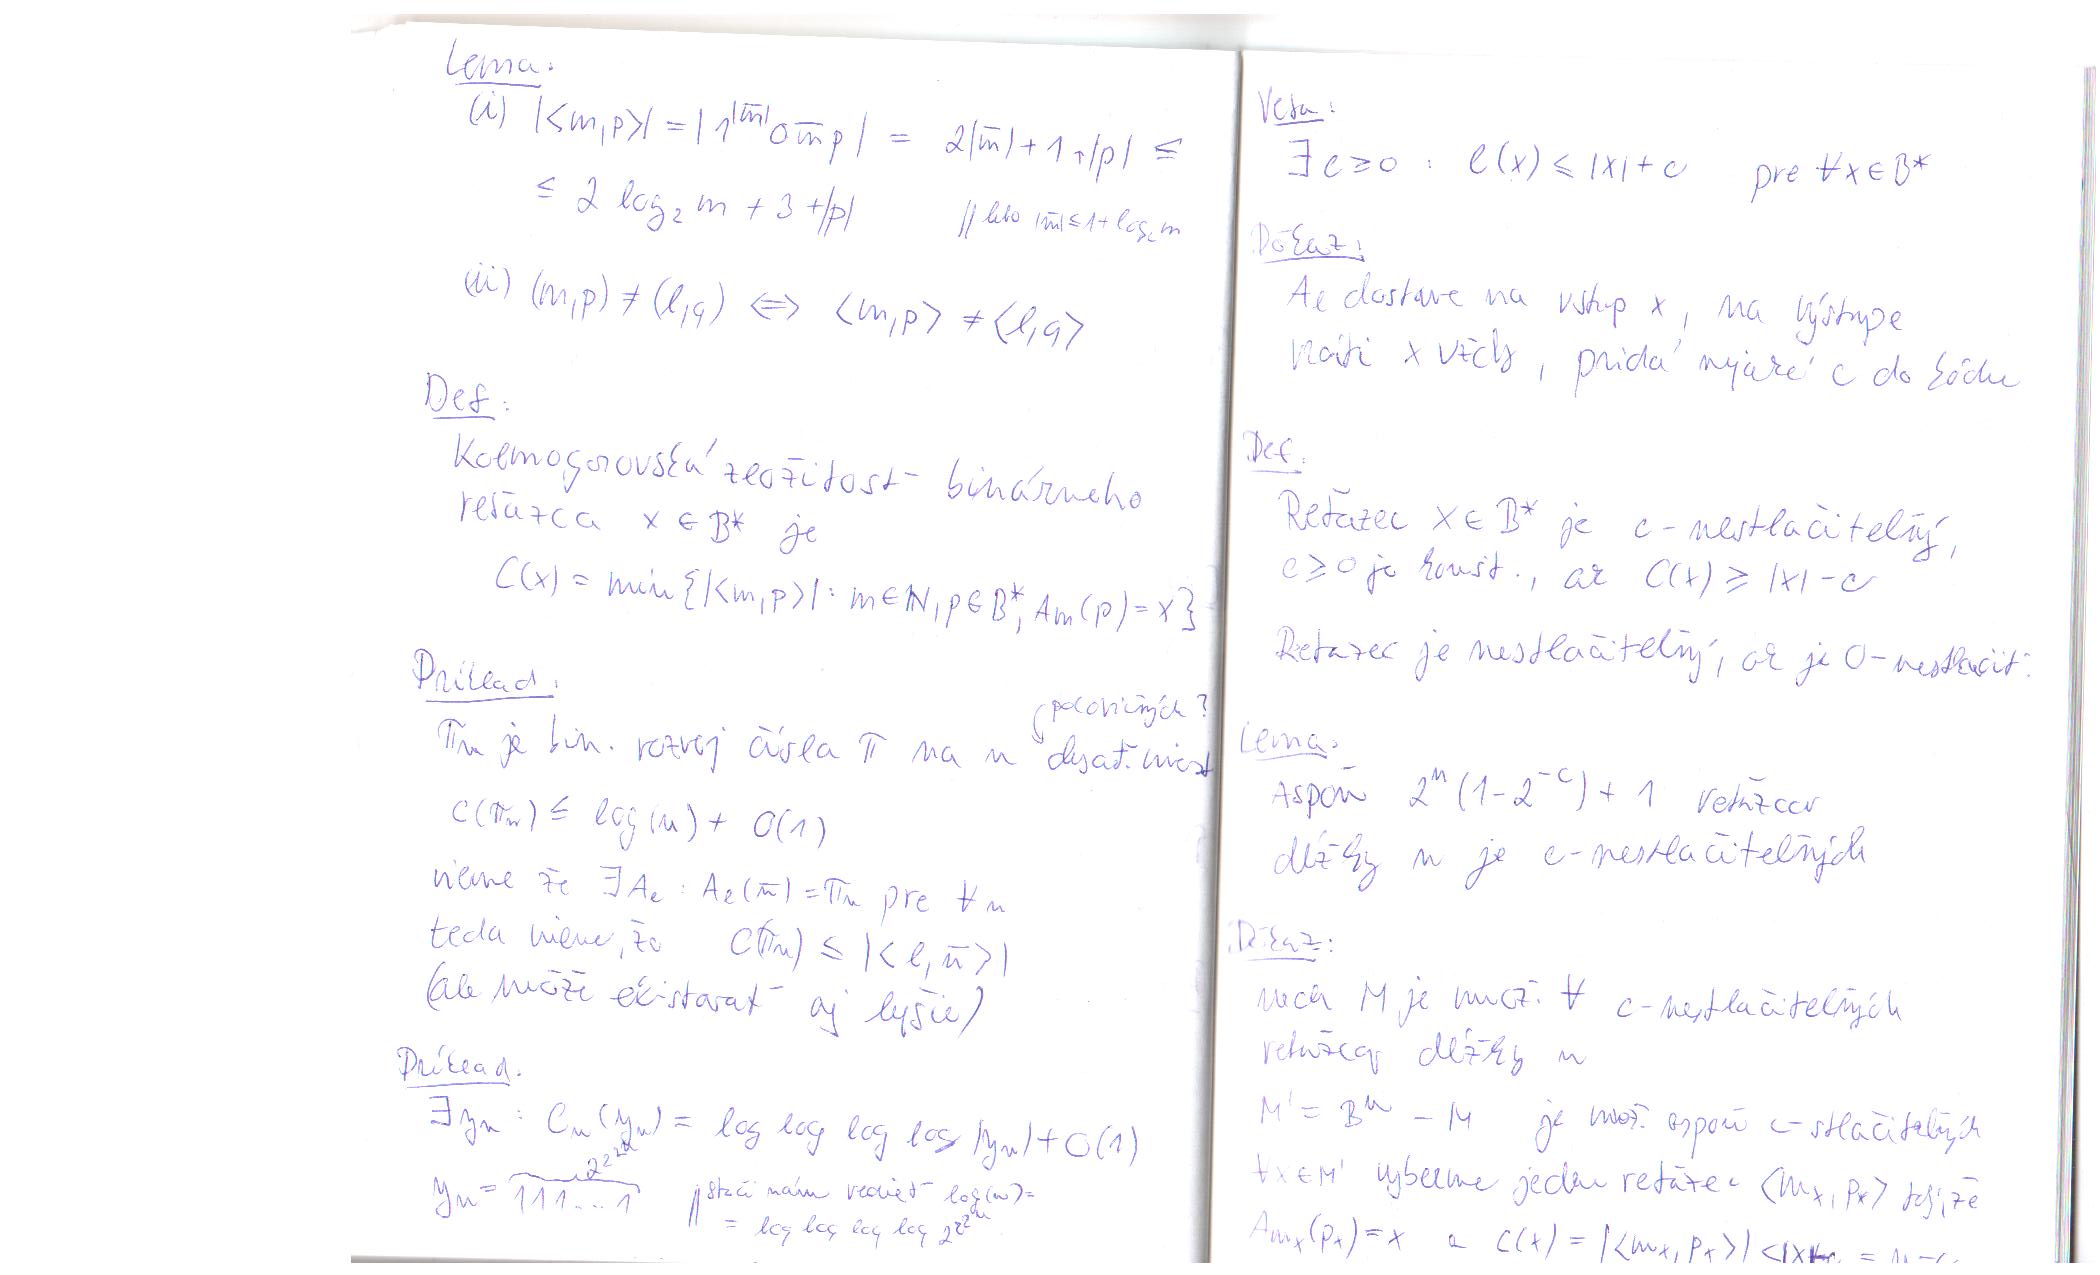 Lema:
(i) |<m,p>| = | 1^|m̅| 0 m̅ p | = 2|m̅| + 1 + |p| ≤
≤ 2 log₂ m + 3 + |p| // lebo |m̅| ≤ 1 + log₂ m
(ii) (m,p) ≠ (l,q) ⇔ <m,p> ≠ <l,q>
Def:
Kolmogorovská zložitosť binárneho
reťazca x ∈ B* je
C(x) = min {|<m,p>| : m ∈ N, p ∈ B*, Am(p) = x}
Príklad:
polovičných?
πn je bin. rozvoj čísla π na n desať. miest
C(πn) ≤ log(n) + O(1)
vieme že ∃Ae : Ae(n̅) = πn pre ∀n
teda vieme, že C(πn) ≤ |<l, n̅>|
(ale môže existovať aj lepšie)
Príklad:
∃yn : Cn(yn) = log log log log |yn| + O(1)
2^2^2^n
yn = 111...1 // stačí nám vedieť log(n) =
= log log log log 2^2^2^n
Veta:
∃c ≥ 0 : C(x) ≤ |x| + c pre ∀x ∈ B*
Dôkaz:
Ae dostane na vstup x, na výstupe
vráti x vždy, pridá nejaké c do kódu
Def:
Reťazec x ∈ B* je c-nestlačiteľný,
c ≥ 0 je konšt., ak C(x) ≥ |x| - c
Reťazec je nestlačiteľný, ak je 0-nestlačit.
Lema:
Aspoň 2^n (1 - 2^-c) + 1 reťazcov
dĺžky n je c-nestlačiteľných
Dôkaz:
nech M je množ. ∀ c-nestlačiteľných
reťazcov dĺžky n
M' = B^n - M je množ. aspoň c-stlačiteľných
∀x ∈ M' vyberme jeden reťazec <mx, px> taký, že
Amx(px) = x a C(x) = |<mx, px>| < |x| - c = n - c